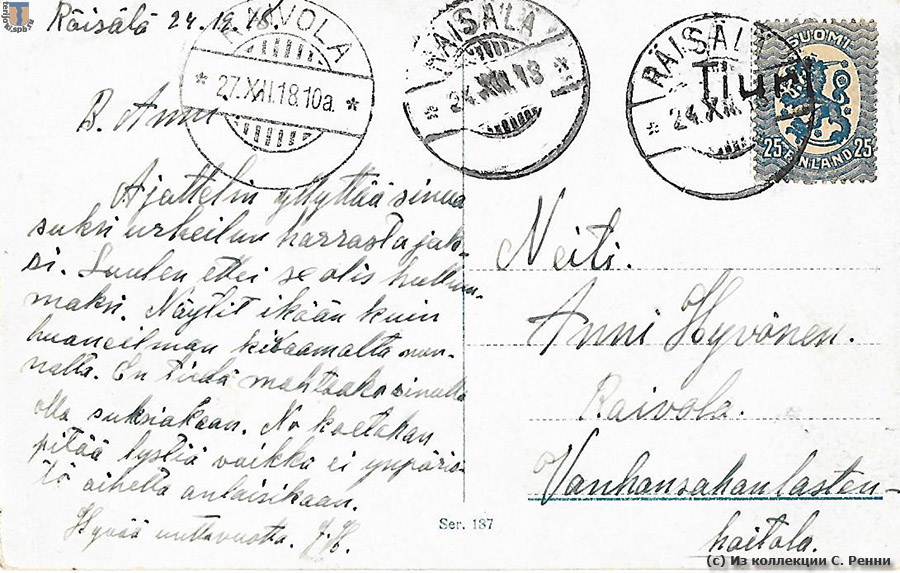 Räisälä 24.12.18
RAIVOLA
27.XII.18.10a.
RÄISÄLÄ
24.XII.18
RÄISÄLÄ
24.XII
SUOMI
25 FINLAND 25
B. Anni
Ajattelin yllyttää sinua
suksi urheilun harrastajak-
si. Luulen ettei se olis hullum-
maksi. Näytit ikään kuin
huoneilman kivaamalta
nalta. En tiedä mahtaako sinulla
olla suksiakaan. No koetahan
pitää lystiä vaikka ei ympäris-
tö aihetta antaisikaan.
Hyvää uuttavuotta. J.H.
Neiti.
Anni Hyvönen.
Raivola.
Vanhansahanlasten-
hoitola.
Ser. 187
(c) Из коллекции С. Ренни